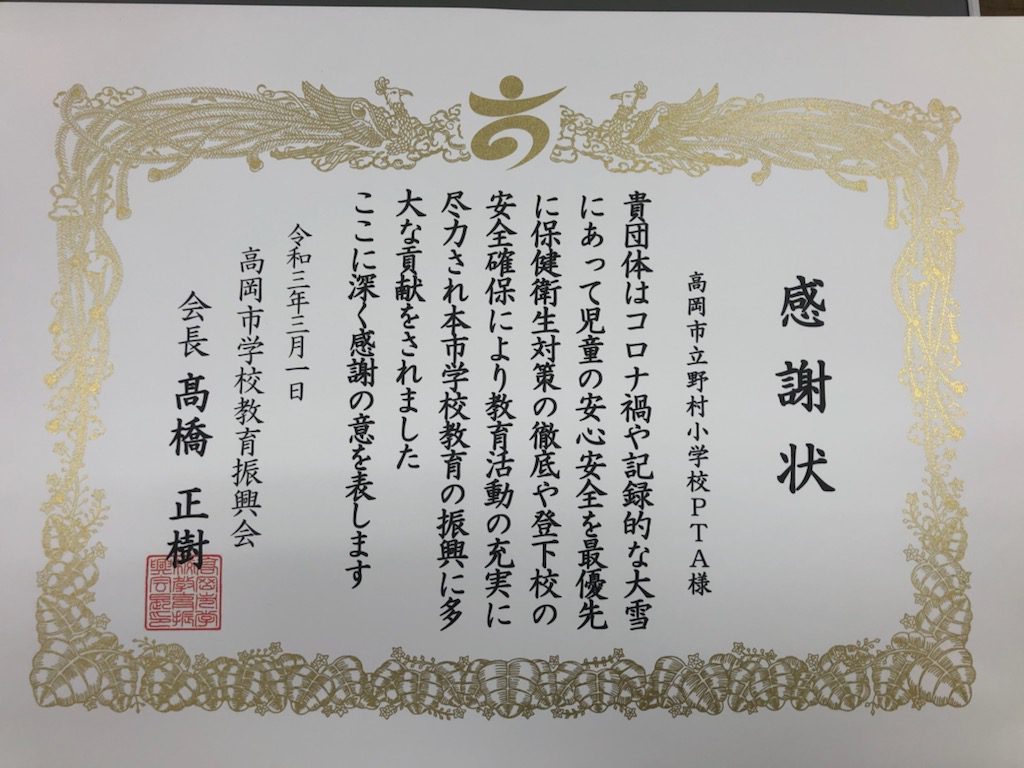 感謝状
高岡市立野村小学校PTA様
貴団体はコロナ禍や記録的な大雪
にあって児童の安心安全を最優先
に保健衛生対策の徹底や登下校の
安全確保により教育活動の充実に
尽力され本市学校教育の振興に多
大な貢献をされました
ここに深く感謝の意を表します
令和三年三月一日
高岡市学校教育振興会
会長 髙橋 正樹